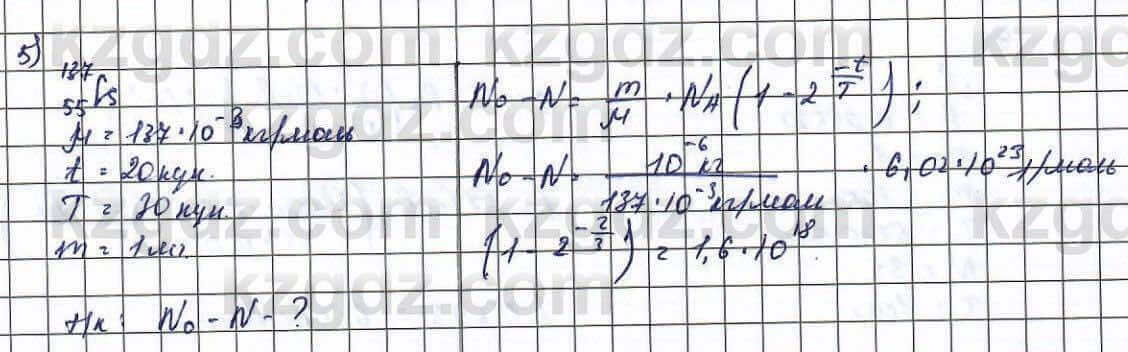 5) ¹³⁷₅₅Cs
μ = 137·10⁻³ кг/моль
t = 20 күн.
T = 30 күн.
m = 1 мг.
Т/к: N₀ - N - ?
N₀ - N = m/μ · N_A (1 - 2^(-t/T));
N₀ - N = 10⁻⁶ кг / 137·10⁻³ кг/моль · 6,02·10²³ 1/моль
(1 - 2^(-2/3)) = 1,6·10¹⁸.
kzgdz.com kzgdz.com kzgdz.com
kzgdz.com kzgdz.com
kzgdz.com kzgdz.com